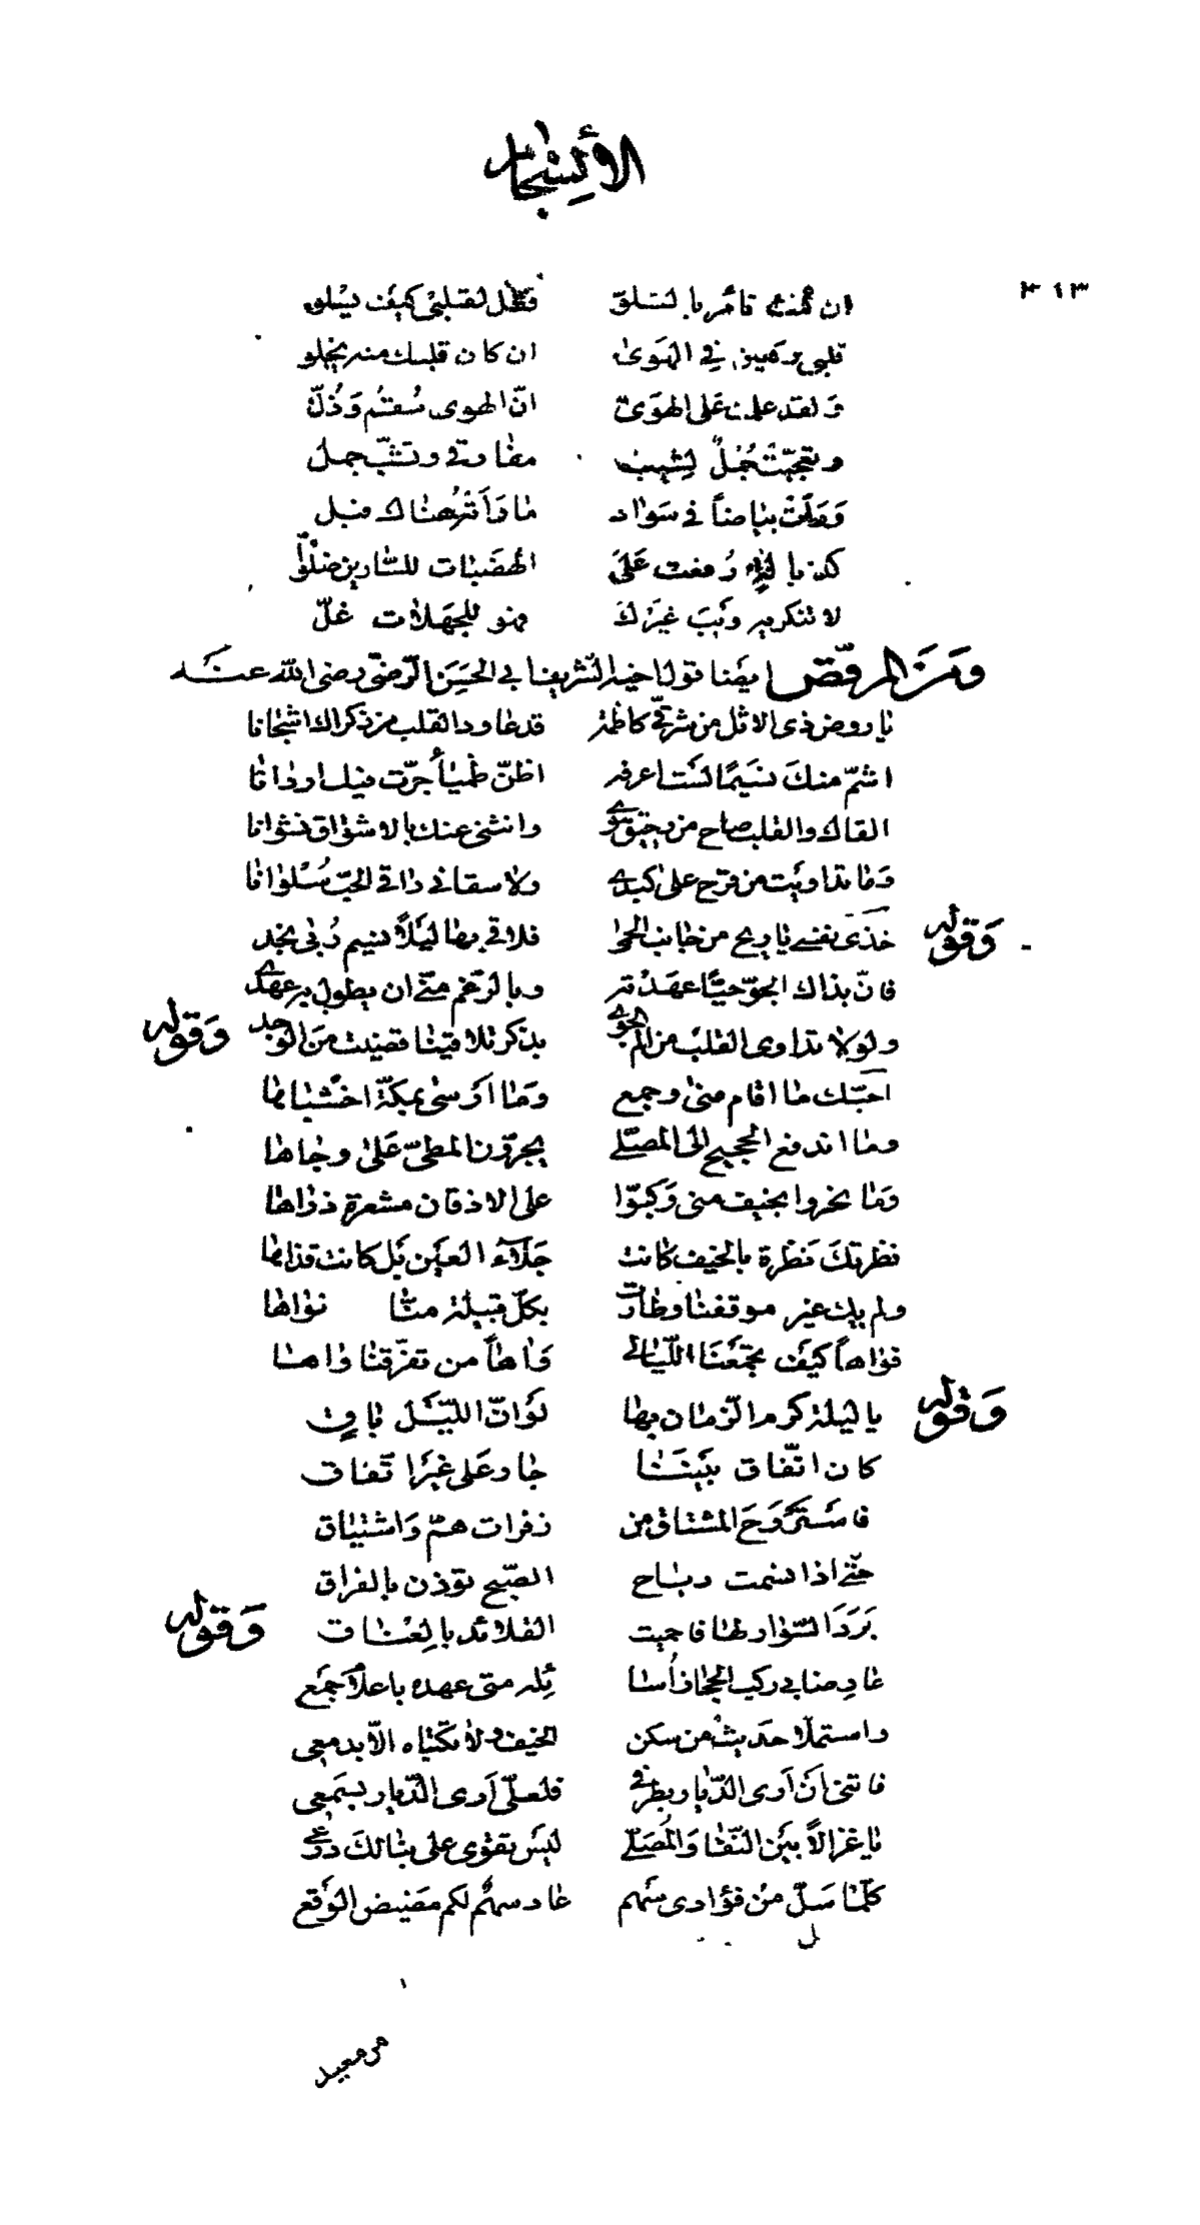 الأسجاد
٣١٣
ان كنت تامر بالتسلق فقل لقلبي كيف يسلو
قلبي رهين في الهوى ان كان قلبك منه يخلو
ولقد علمت على الهوى انّ الهوى سقم وذلّ
وتعجّبت جمل لشيب مفارقي وتشيب جمل
ورات بياضاً في سواد ما راته هناك قبل
كذبالة رفعت على الهضبات للسارين ضلّوا
لا تنكريه ويب غيرك فهو للجهلات غلّ
ومن المرقص ايضا قول اخيه الشريف ابي الحسن الرضي رضي الله عنه
يا روض ذي الاثل من شرقي كاظمة قد عاود القلب من ذكراك اشجانا
اشمّ منك نسيما لست اعرفه اظنّ ظمياء جرّت فيك اردانا
القاك والقلب صاح من رجيق هوى وانثنى عنك بالاشواق نشوانا
وما تداويت من قرح على كبدي ولا سقاني راقي الحبّ سلوانا
وقوله
خذي نفسي يا ريح من جانب الحمى فلاقي بها ليلاً نسيم ربى نجد
فانّ بذاك الجوّ حيّا عهدته وبالرّغم منّي ان يطول به عهدي
ولولا تداوي القلب من الم الجوى بذكر تلاقينا قضيت من الوجد
وقوله
احبّك ما اقام منى وجمع وما ارسى بمكّة اخشباها
وما اندفع الحجيج الى المصلّى يجرّون المطيّ على وجاها
وما نحروا بخيف منى وكبّوا على الاذقان مشعرة ذراها
نظرتك نظرة بالخيف كانت جلاء العين بل كانت قذاها
ولم يك غير موقفنا وطارت بكلّ قبيلة منّا نواها
فواهاً كيف تجمعنا الليالي وآهاً من تفرّقنا واها
وقوله
يا ليلة كرم الزمان بها لو انّ الليل باق
كان اتّفاق بيننا جار على غير اتفاق
فاستروح المشتاق من زفرات همّ واشتياق
حتى اذا نسمت رياح الصبح توذن بالفراق
برد السوار لها فاحميت القلائد بالعناق
وقوله
عارضا بي ركب الحجاز أسائله متى عهده باعلام جمع
واستملّا حديث من سكن الخيف ولا تكتباه الاّ بدمعي
فاتني ان ارى الديار بطرفي فلعلّي ارى الديار بسمعي
يا غزالاً بين النقا والمصلّى ليس تقوى على نبالك درعي
كلّما سلّ من فؤادي سهم عاد سهم لكم مضيض الوقع